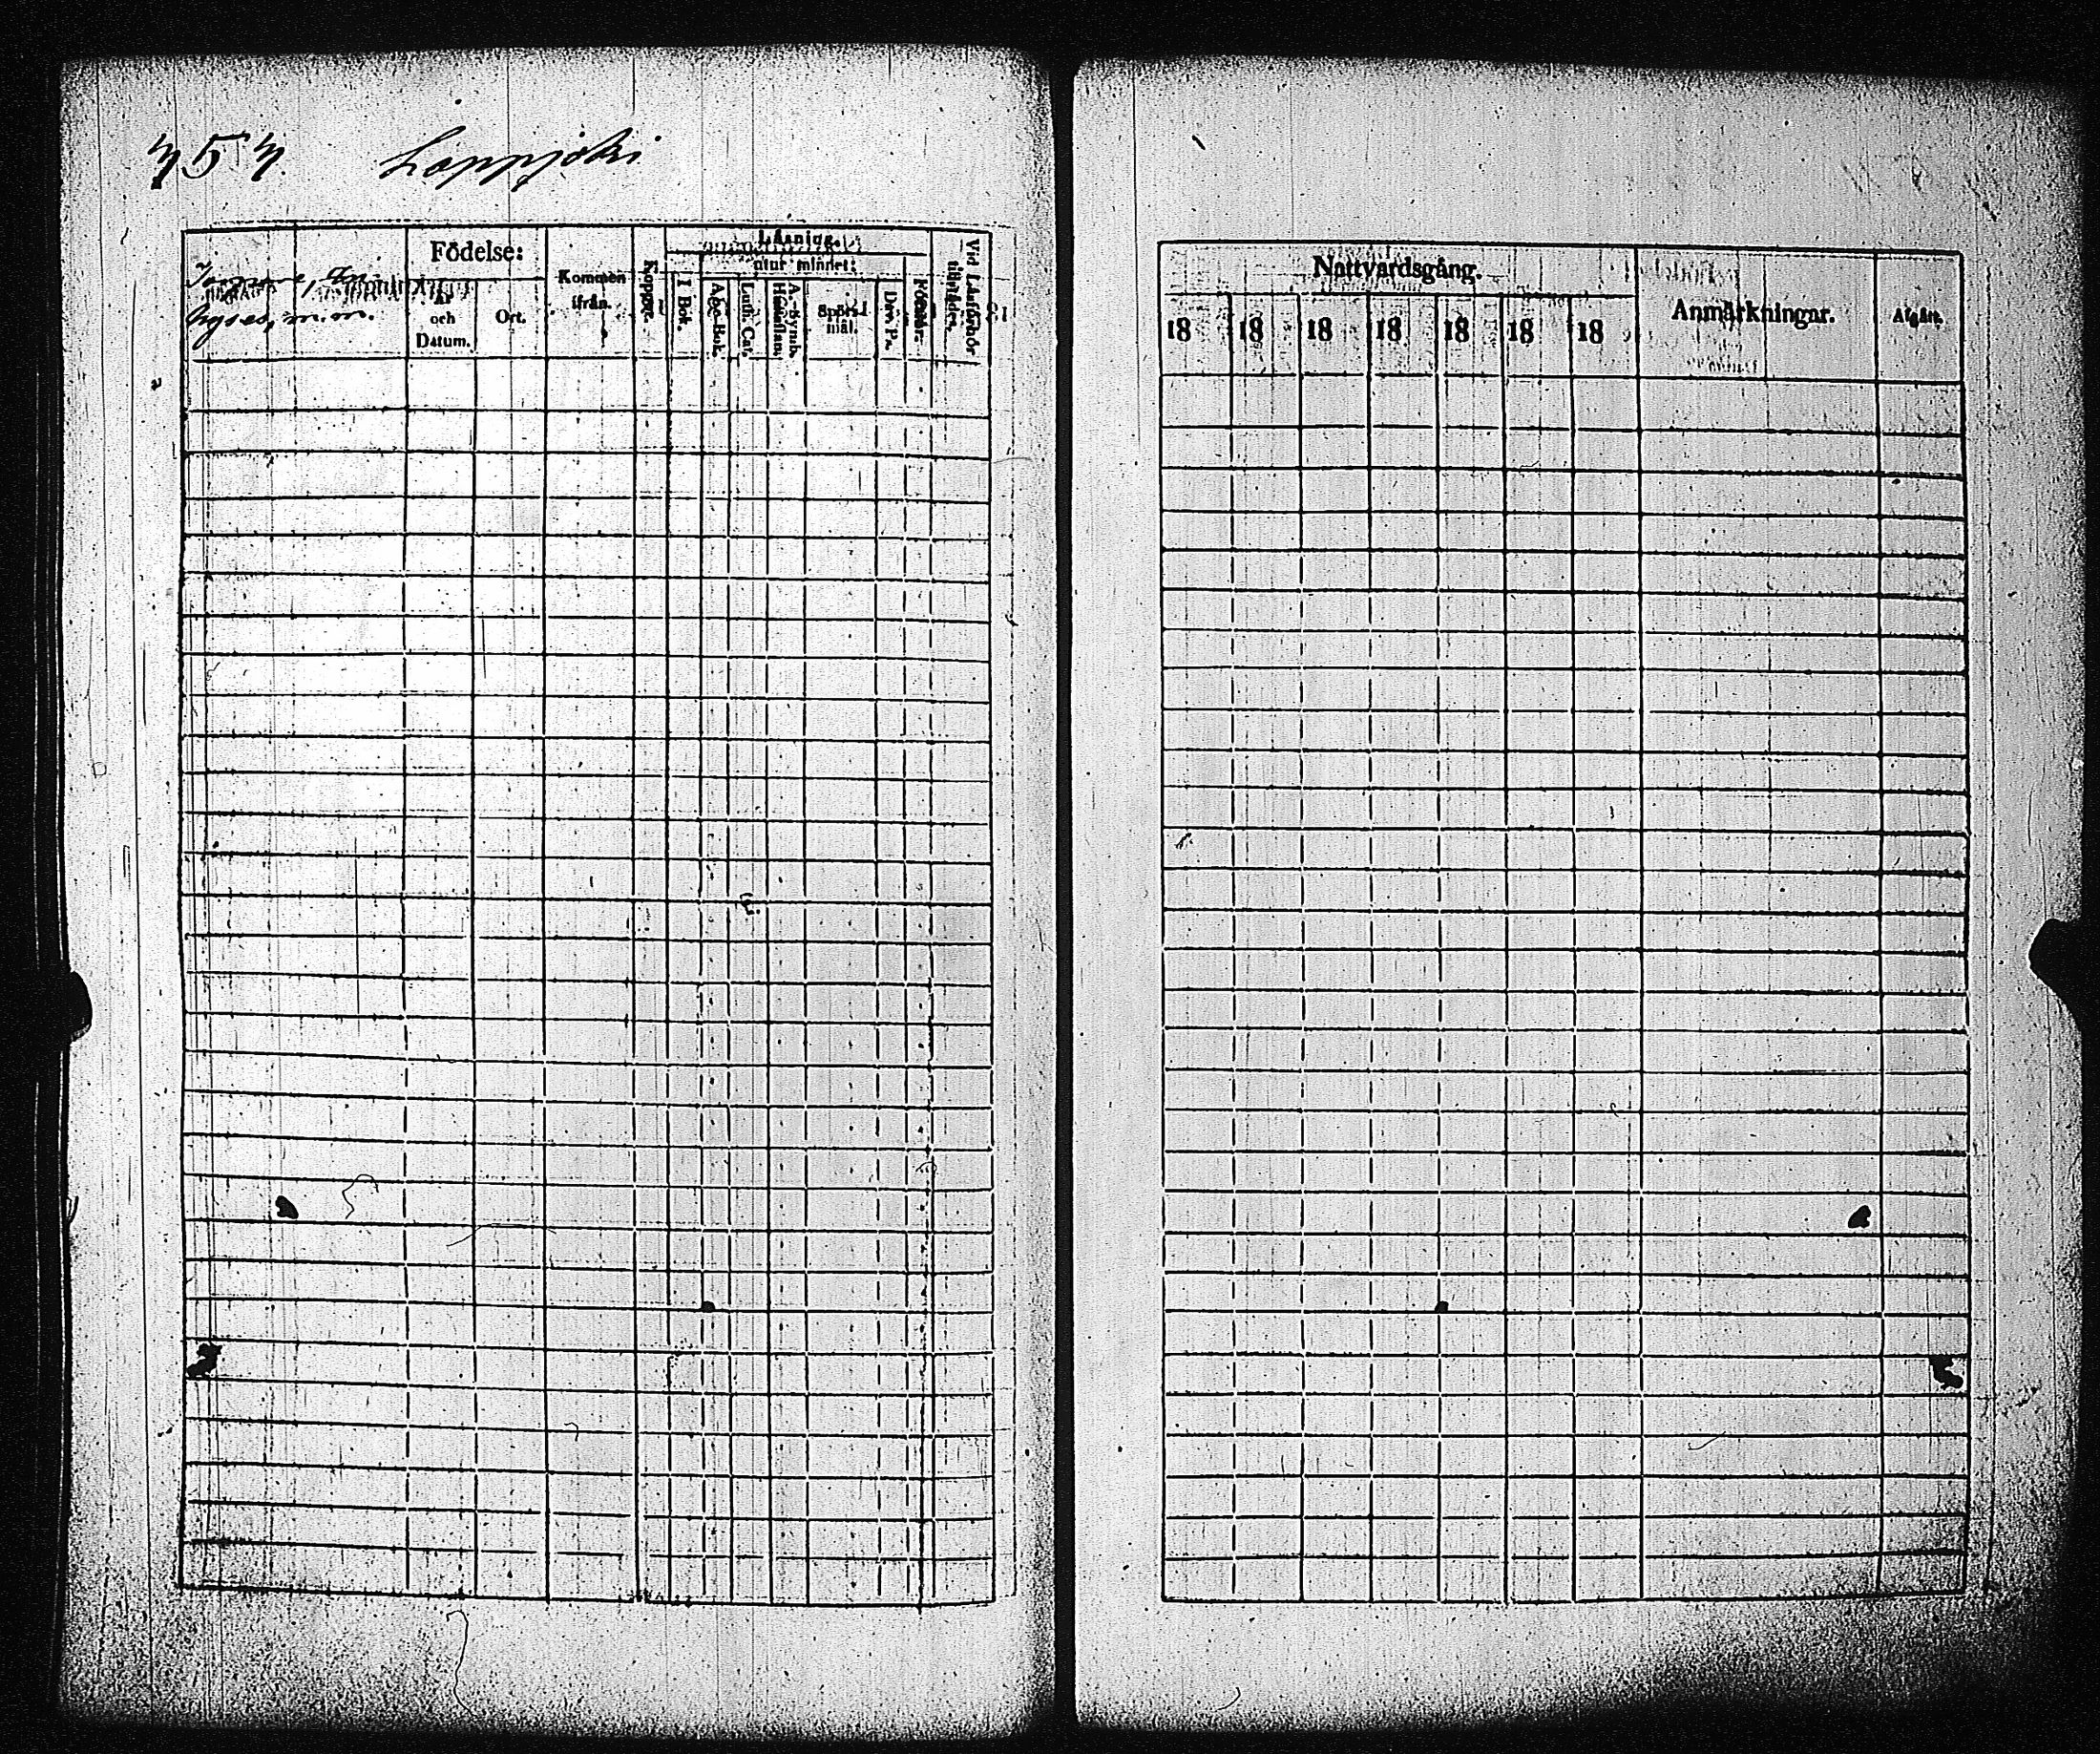 757. Lappjoki
Födelse:
År
och
Datum.
Ort.
Kommen
ifrån.
Koppor.
Läsning.
utur minnet:
I Bok.
Abc-Bok.
Luth. Cat.
A.-Symb.
Hustaflan.
Spörs-
mål.
Dav. Ps.
Förstår.
Vid Läsförhör
tillstädes.
Nattvardsgång.
18 18 18 18 18 18 18
Anmärkningar.
Afgått.